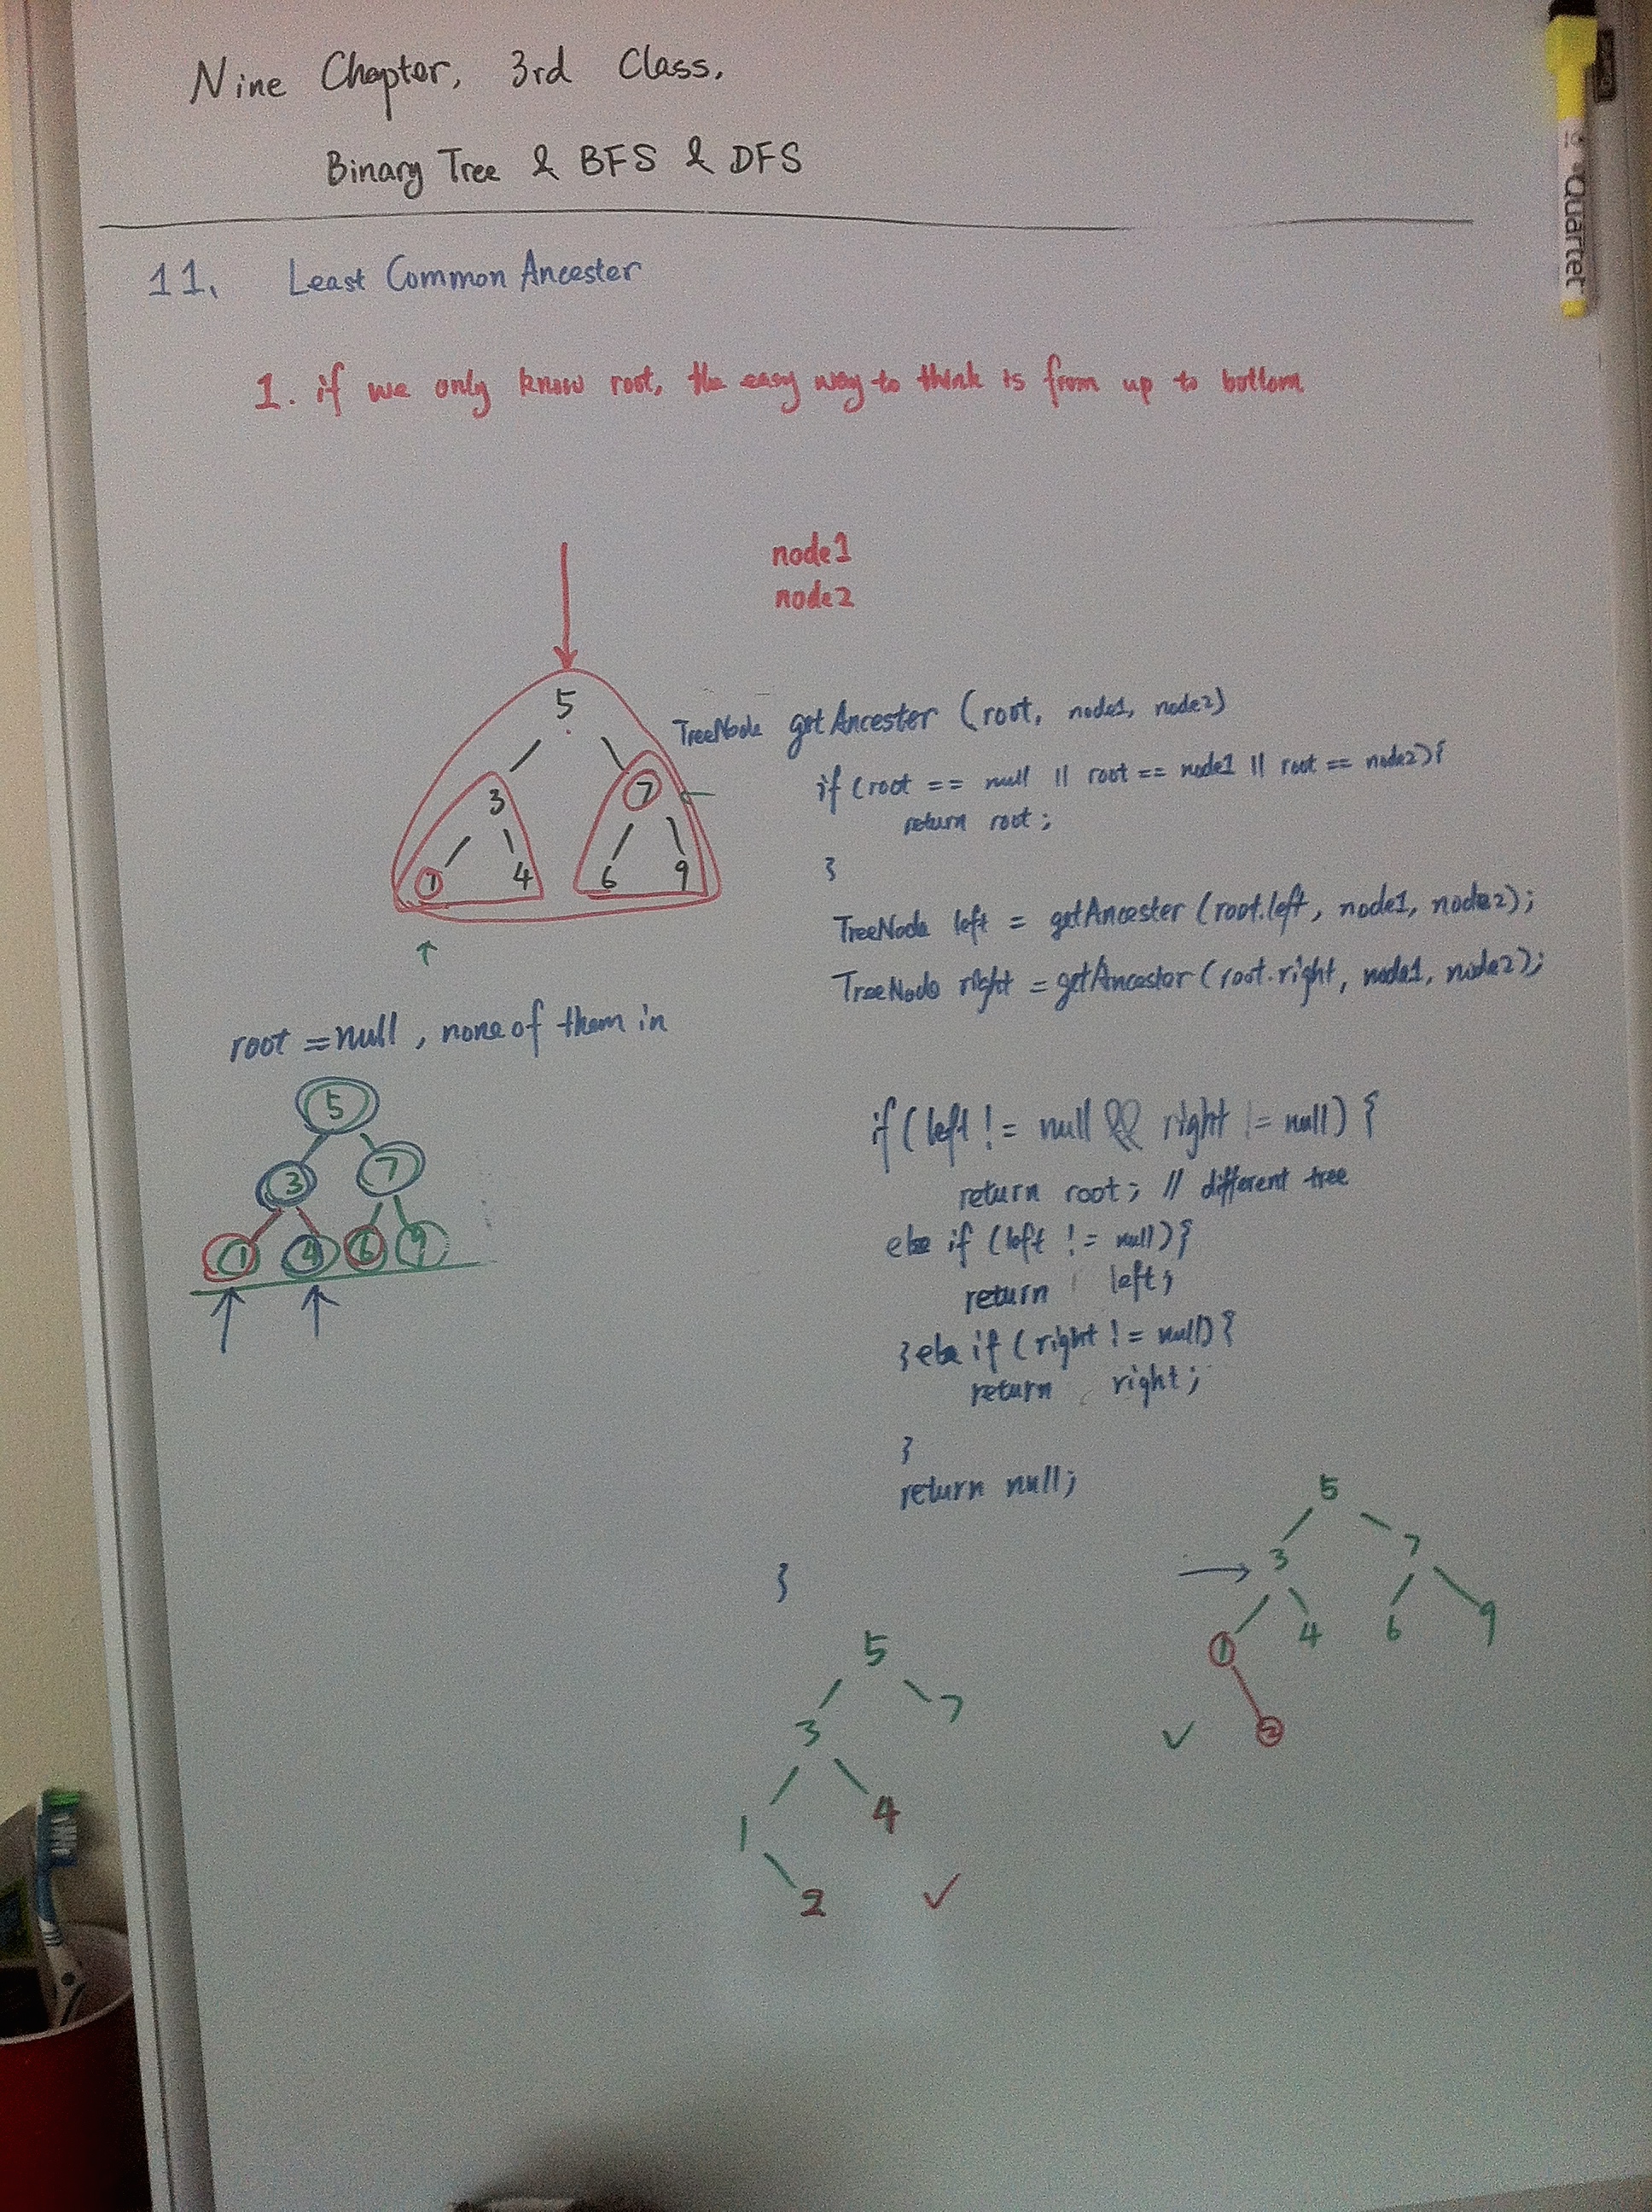 Nine Chapter, 3rd Class.
Binary Tree & BFS & DFS
Quartet
11. Least Common Ancester
1. if we only know root, the easy way to think is from up to bottom
node1
node2
5
3 7
1 4 6 9
TreeNode getAncester (root, node1, node2)
if (root == null || root == node1 || root == node2){
return root;
}
TreeNode left = getAncester (root.left, node1, node2);
TreeNode right = getAncester (root.right, node1, node2);
root = null, none of them in
5
3 7
1 4 6 9
if (left != null && right != null) {
return root; // different tree
else if (left != null){
return left;
}else if (right != null){
return right;
}
return null;
}
5
3 7
1 4 6 9
2
5
3 7
1 4
2